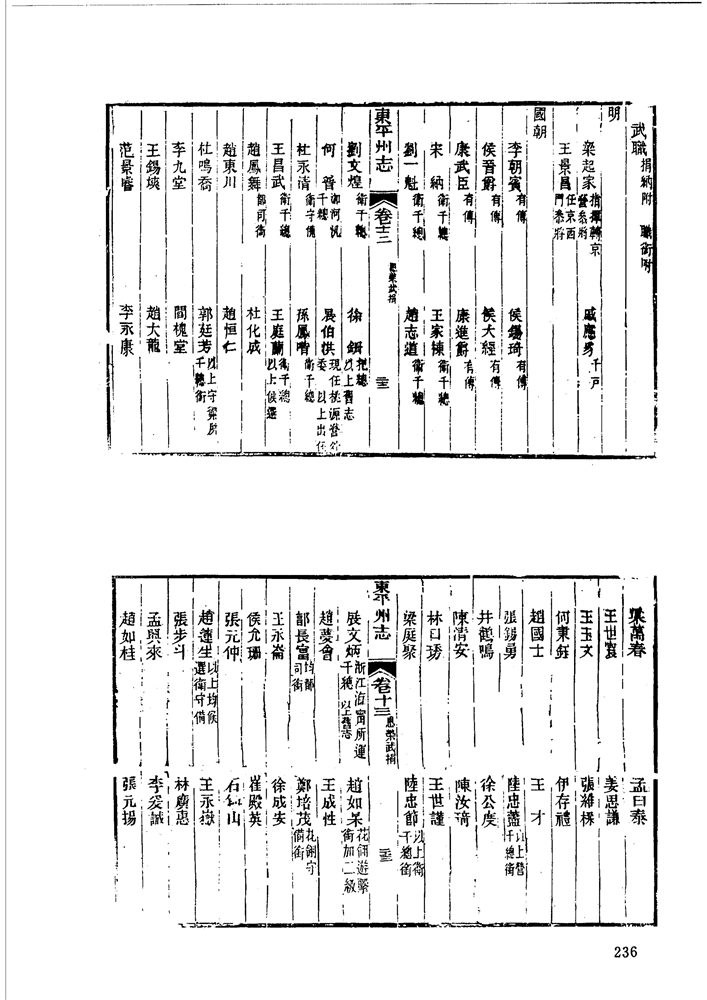 武職捐納附 職銜附
明
梁起家指揮轉京營叅將 戚應昴千戸
王景昌任京西門叅將
國朝
李朝賓有傳 侯錫琦有傳
侯晉爵有傳 侯大經有傳
康武臣有傳 康進爵有傳
宋納衛千總 王家棟衛千總
劉一魁衛千總 趙志道衛千總
東平州志 卷十三 恩榮武捐 三三
劉文煌衛千總 徐 把總以上舊志
何晉 千總 展伯洪現任桃源營 以上出仕
杜永清衛守備 孫鳳喈衛千總
王昌武衛千總 王庭蘭衛千總以上候選
趙鳳舞都司銜 杜化成
趙東川 趙恒仁
杜鳴喬 郭廷芳以上守梁所千總銜
李九堂 間槐堂
王錫瑛 趙大龍
范景睿 李永康
梁萬春 孟曰泰
王世寰 姜思謙
王玉文 張維樑
何秉鈺 伊存禮
趙國士 王才
張錫勇 陸忠藎以上營千總銜
井鶴鳴 徐公度
陳清安 陳汝琦
林曰琇 王世謹
梁庭聚 陸忠節以上衛千總銜
東平州志 卷十三 恩榮武捐 三三
展文炳浙江海甯所運千總以上舊志 趙如杲花翎遊擊銜加二級
趙夢會 王成性
郜長富均都司銜 鄭培茂花翎守備銜
王永崙 徐成安
侯允珊 崔殿英
張元仲 石 山
趙蓮生以上均候選衛守備 王永嶽
張步斗 林廣惠
孟興來 李爰誠
趙如桂 張元揚
236